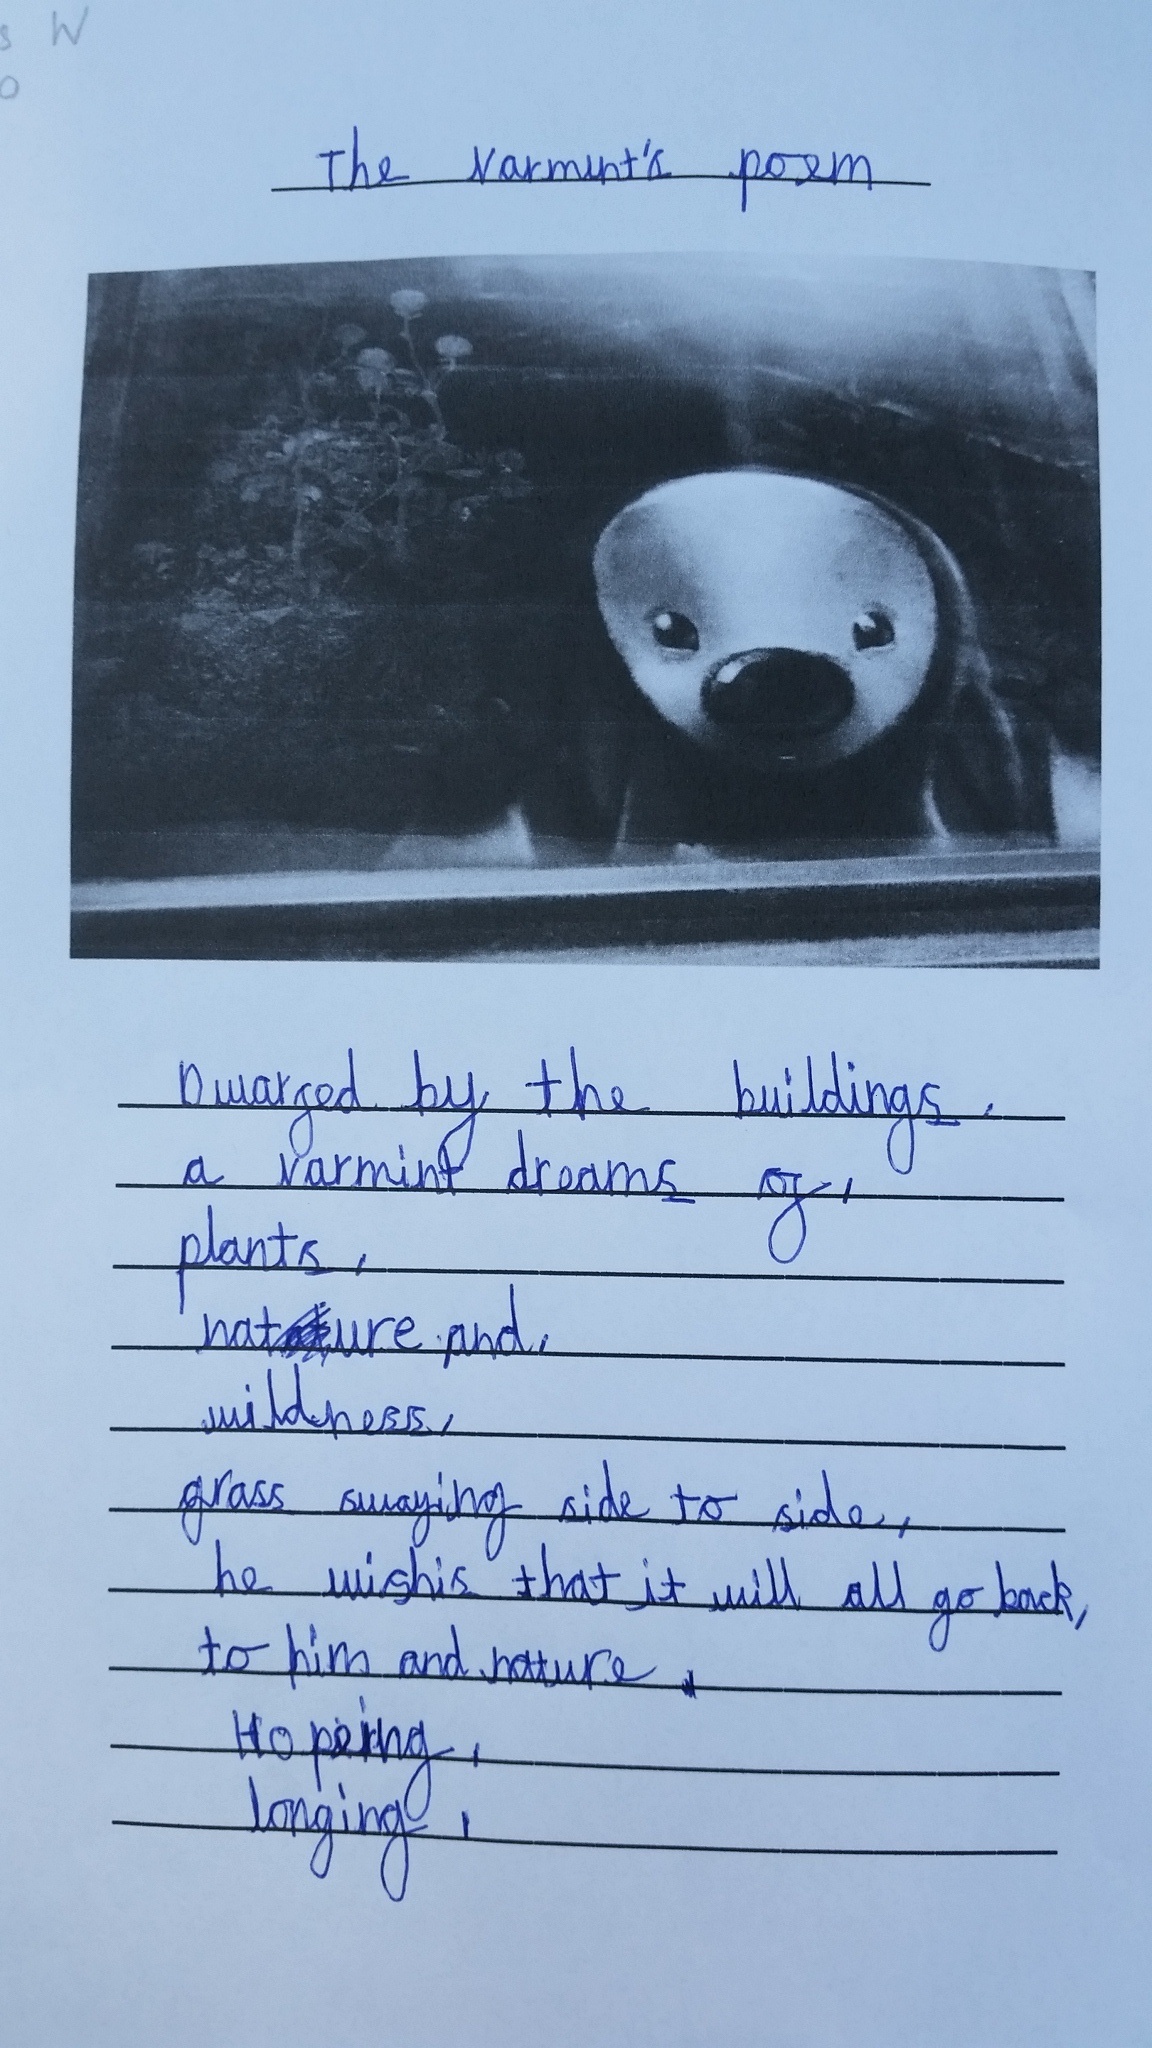 s W
o
The Varmint's poem
Dwarfed by the buildings,
a varmint dreams of,
plants,
nature and,
wildness,
grass swaying side to side,
he wishis that it will all go back,
to him and nature.
Hopeing,
longing,